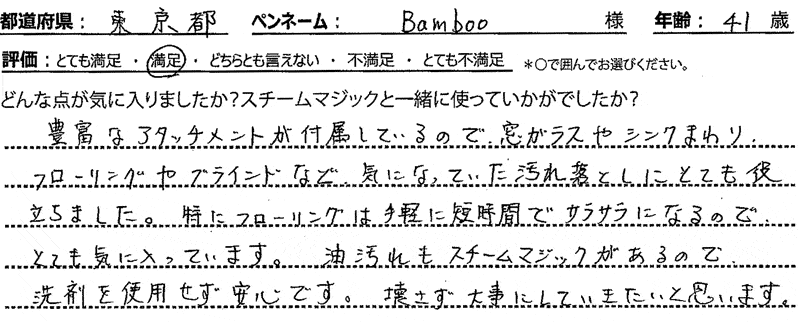 都道府県： 東京都 ペンネーム： Bamboo 様 年齢： 41 歳
評価：とても満足 ・ 満足 ・ どちらとも言えない ・ 不満足 ・ とても不満足 ＊○で囲んでお選びください。
どんな点が気に入りましたか？スチームマジックと一緒に使っていかがでしたか？
豊富なアタッチメントが付属しているので、窓ガラスやシンクまわり、
フローリングやブラインドなど、気になっていた汚れ落としにとても役
立ちました。特にフローリングは手軽に短時間でサラサラになるので、
とても気に入っています。 油汚れもスチームマジックがあるので、
洗剤を使用せず安心です。 壊さず大事にしていきたいと思います。